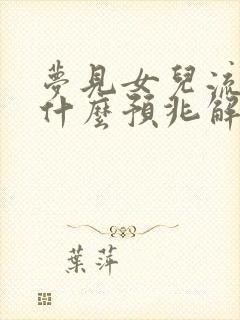 夢見女兒流
什麼預兆解
葉萍